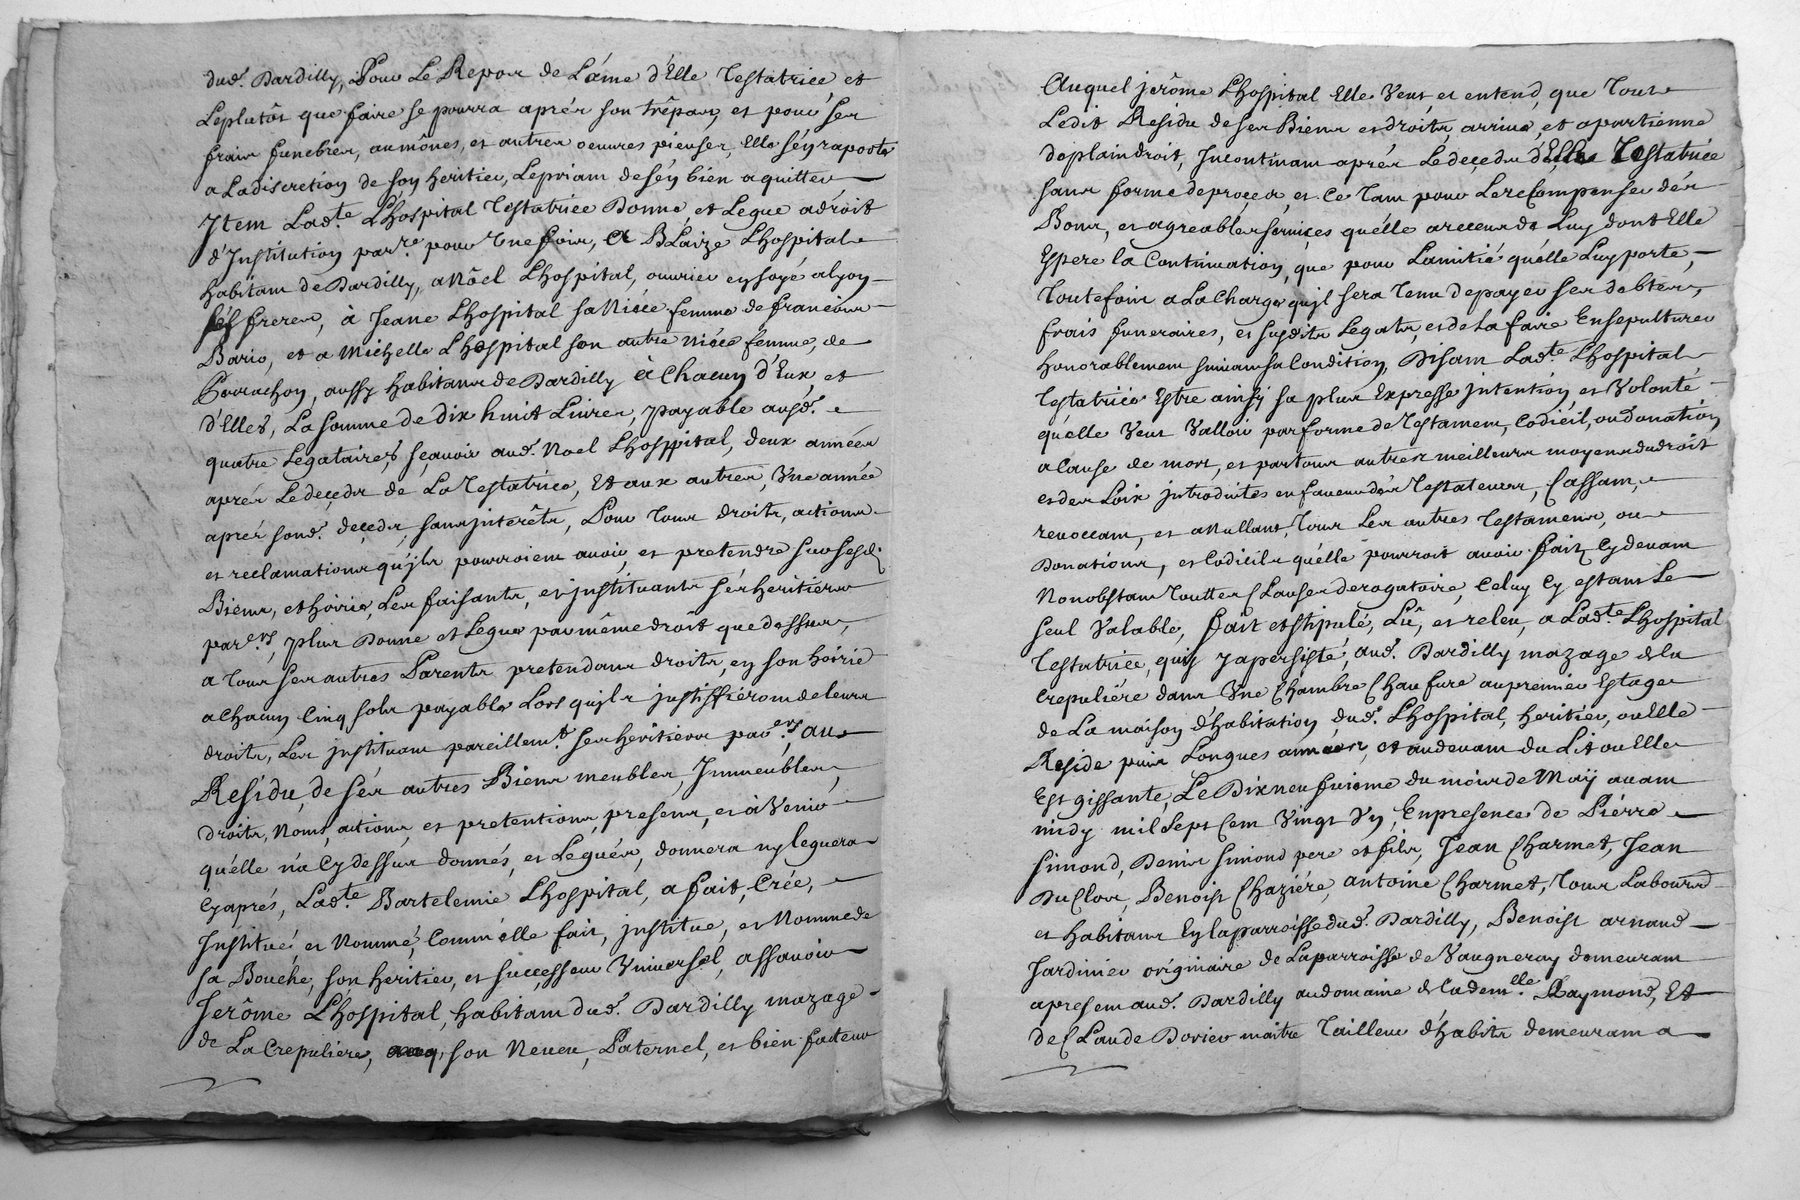 dud. Dardilly, Pour Le Repos de Láme d'Elle Testatrice, et
Leplutôt que faire se pourra aprés son trêpas, et pour Ses
frais funebres, aumônes, et autres oeuvres pieuses, Elle séy raporte
a Ladiscretion de son heritier, Lepriant deséy bien aquitter
Item Ladte. Lhospital Testatrice Donne et Legue adroit
d'Institution parre. pour Une fois, A BLaize Lhospital
habitant de Dardilly, a Nôel Lhospital, ouvrier en soye alyon
ses freres, à Jeane Lhospital sa Niéce femme de francois
Bario, et a Michelle Lhospital son autre niéce femme, de
aussy habitans de Dardilly à Chacun d'Eux, et
d'Elles, La somme de dix huit Livres, payable ausd.
quatre Legataires, sçavoir aud. Noel Lhospital, deux années
aprés Ledeçeds de La Testatrice, Et aux autres, Une année
aprés sond. deçeds, sans interêts, Pour Tous droits, actions
et reclamations qu'jls pourroient avoir, et pretendre sur sesd.
Biens, et hoirie, Les faisants, et jnstituants sés heritiers
parers., plus Donne et Legue par même droit que dessus,
a Tous ses autres Parents pretendans droits, en son hoirie
a Chacun Cinq sols payables Lors qu'jls justiffiéront de leurs
droits, Les jnstituant pareillemt. ses heritiers parers., au
Residu, de sés autres Biens meubles, Jmmeubles,
droits, Noms, actions, et pretentions, presens, et à Venir
qu'élle n'a Cydessus donnés, et Legués, donnera ny leguera
Cyaprés, Ladte. Bartelemie Lhospital, a fait, Crée,
Institué, et Nommé, Comm'élle fait, jnstitue, et Nomme de
sa Bouche, son heritier, et successeur Universél, assavoir
Jerôme Lhospital, habitant dud. Dardilly mazage
de La Crepuliere, son Neveu, Paternel, et bien faiteur
Auquel jerôme Lhospital Elle Veut, et entend, que Tout
Ledit Residu de ses Biens et droits, arrive, et apartienne
deplain droit, Jncontinant aprés Ledeçeds d'Elle Testatrice
sans forme deproçes, et Ce Tant pour Le recompenser dés
Bons, et agreables services qu'élle a receus de Luy dont Elle
Espere la Continuation, que pour L'amitié qu'élle Luy porte,
Toutefois a La Charge qu'jl sera Tenu depayer ses debtes,
frais funeraires, et susdits Legats, et de La faire Ensepulturer
honorablement suivant sa Condition, Disant Ladte. Lhospital
Testatrice Estre ainsy sa plus Expresse jntention, et Volonté
qu'elle Veut Valloir par forme de Testament, Codicil, ou donation
a Cause de mort, et partous autres meilleurs moyens dudroit
et des Loix jntroduites en faveur dés Testateurs, Cassant,
revoccant, et anullant, Tous Les autres Testamens, ou
Donations, et Codicils qu'élle pourroit avoir fait, Cydevant
Nonobstant Touttes Clauses derogatoire, Celuy Cy estant Le
seul Valable, fait et stipulé, Lû, et releu, a Ladte. Lhospital
Testatrice, quij y a persisté, aud. Dardilly mazage de la
Crepuliére dans Une Chambre Chaufure au premier Estage
de La maison d'habitation dud. Lhospital, heritier, ou Elle
Reside puis Longues années, et audevant du Lit ou Elle
Est gissante, Le Dixneufuiéme du mois de Maÿ avant
midy mil Sept Cent Vingt Un, Enpresence de Piérre
Simond, Denis Simond pere et fils, Jean Charmet, Jean
DuClos, Benoist Chaziére, antoine Charmet, Tous Labours
et habitans En laparroisse dud. Dardilly, Benoist arnaud
Jardinier originaire de Laparroisse de Vaugneray demeurant
apresent aud. Dardilly audomaine de lademlle. Raymond, Et
de Claude Dorier maitre Tailleur d'habits demeurant a